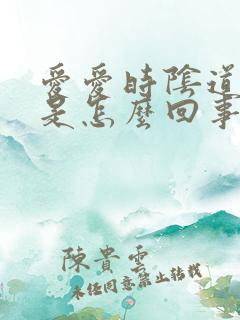 愛愛時陰道
是怎麼回事
陳貴雲
未经同意禁止转载